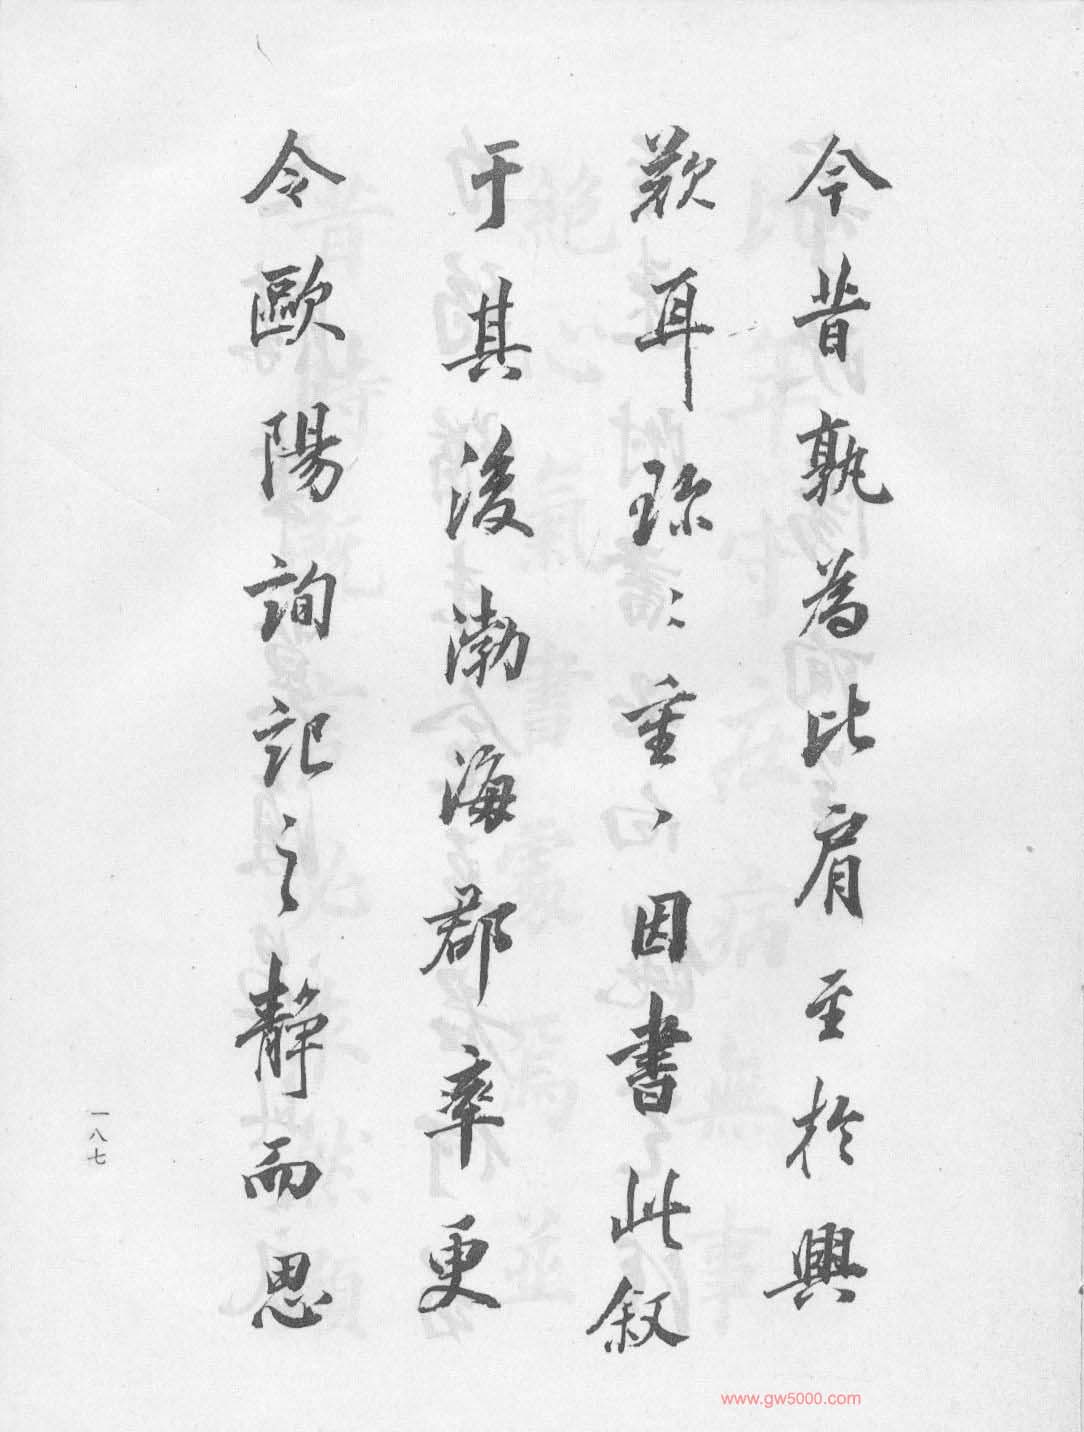 今昔孰為比肩至於興
歎耳珎〻重丶因書此叙
于其後渤海郡率更
令歐陽詢記之静而思
一八七
www.gw5000.com